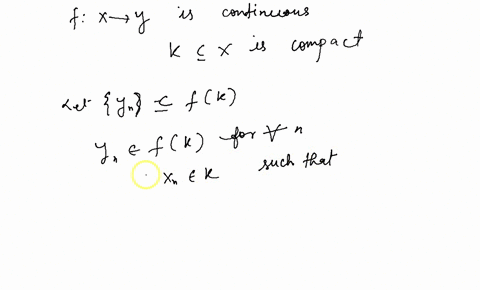 f: x→y is continuous
K ⊆ X is compact
Let {yₙ} ⊆ f(K)
yₙ ∈ f(K) for ∀ n
xₙ ∈ K such that